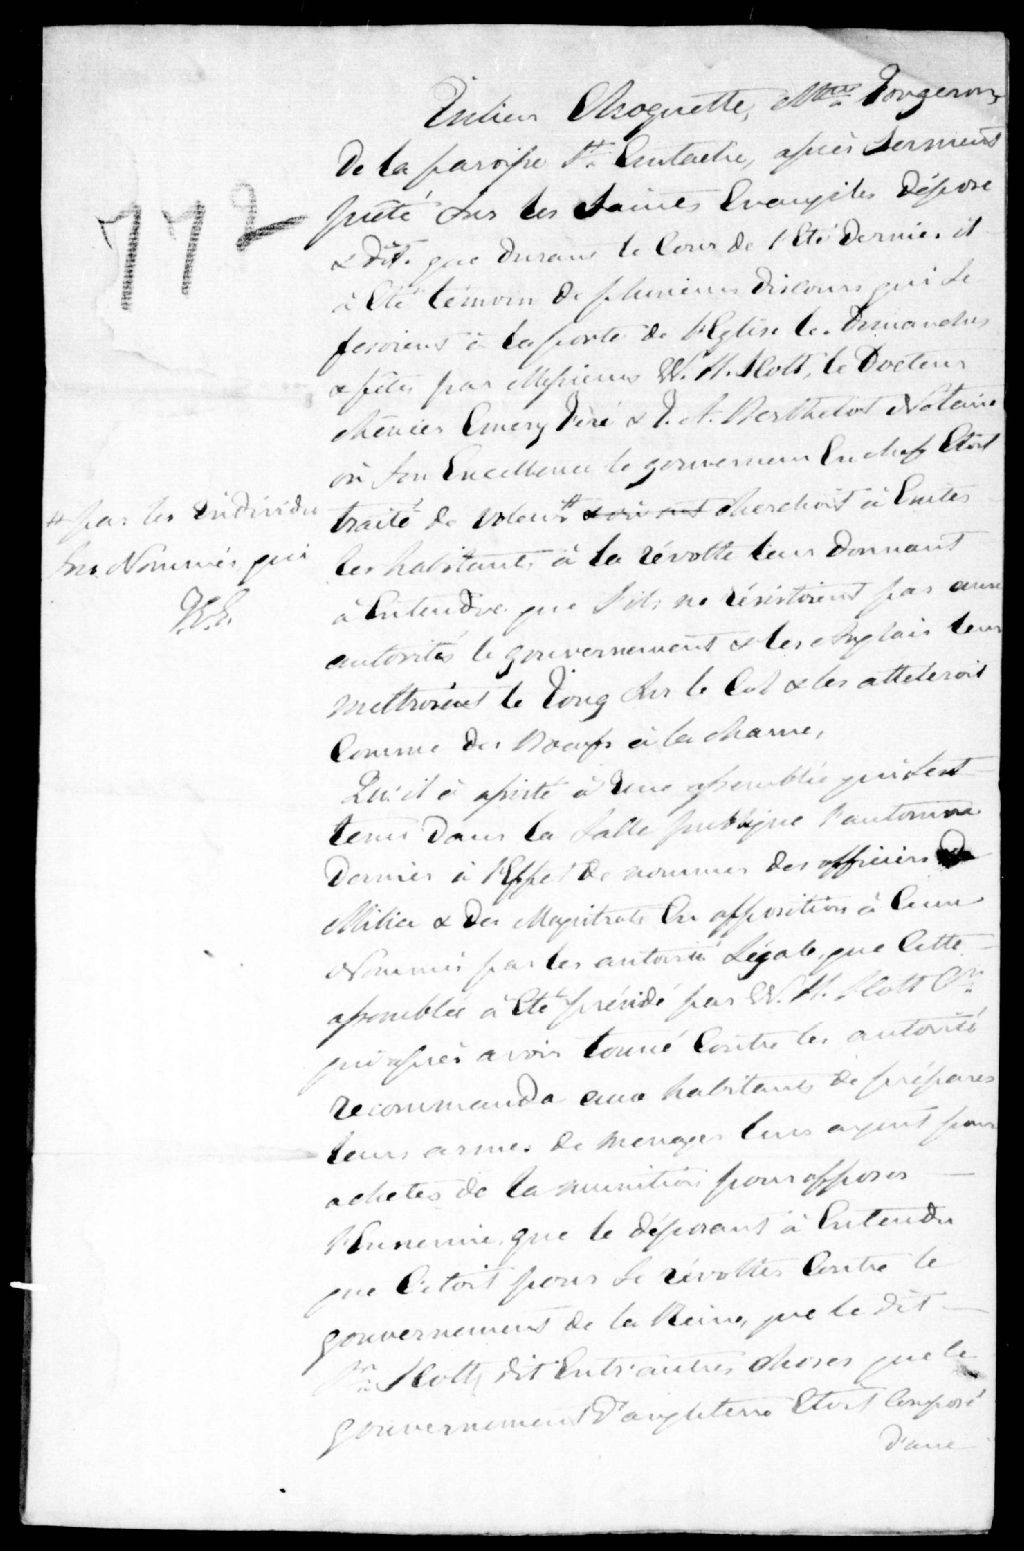 772
Julien Choquette, Mtre Forgeron,
De la paroisse St. Eustache, après serment
preté sur les Saints Evangiles dépose
& dit, que durant le Cour de l'Eté dernier il
à Eté témoin de plusieurs discours qui se
fesoient à la porte de l'Eglise les dimanches
& fêtes par Messieurs W. H. Scott, le Docteur
Chénier Emery Féré & J. A. Berthelot Notaire
où Son Excellence le gouverneur En chef Etoit
traité de voleur # cherchoit à Exiter
les habitants à la révolte leur donnant
à Entendre que S'ils ne résistoient pas aux
autorités le gouvernement & les Anglais leur
mettroient le Joug sur le Col & les atteleroit
Comme des Boeufs à la charue,
# par les individu
sus Nommés qui
Qu'il à assisté à Une assemblée qui s'est
tenu dans la Salle publique l'automne
dernier à l'Effet de nommer des officiers de
Milice & des Magistrats En opposition à Ceux
Nommés par les autorité Légale, que Cette
assemblée à Eté présidé par W. H. Scott Er.
qui après avoir tonné Contre les autorité
recommanda aux habitants de préparer
leurs armes de menager leur argent pour
acheter de la munition pour opposer
l'Ennemie, que le déposant à Entendu
que C'étoit pour Se révolter Contre le
gouvernement de la Reine, que le dit
Sr. Scott, dit Entr'autres choses que le
gouvernement d'angleterre Etoit Composé
d'une